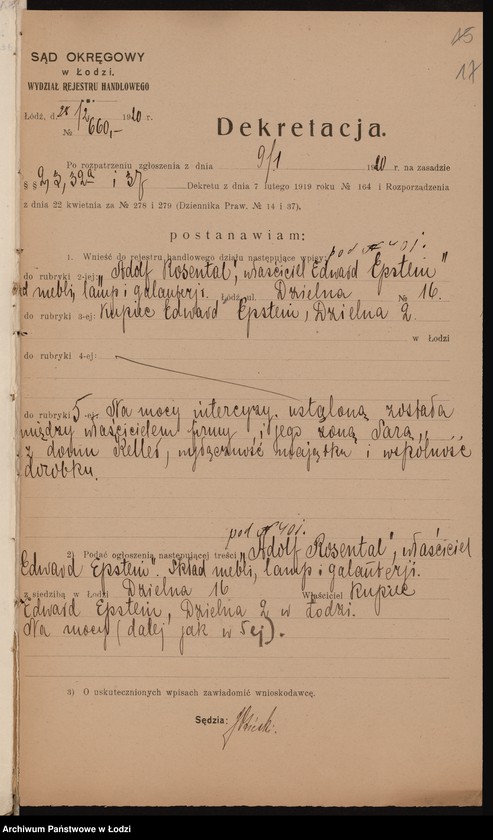 15
17
SĄD OKRĘGOWY
w Łodzi.
WYDZIAŁ REJESTRU HANDLOWEGO
Łódź, d. 28 1/2 1920 r.
№ 660,-
Dekretacja.
Po rozpatrzeniu zgłoszenia z dnia 9/1 1920 r. na zasadzie
§ § 2, 3, 32a i 37 Dekretu z dnia 7 lutego 1919 roku № 164 i Rozporządzenia
z dnia 22 kwietnia za № 278 i 279 (Dziennika Praw. № 14 i 37).
postanawiam:
pod № 401.
1. Wnieść do rejestru handlowego działu następujące wpisy:
do rubryki 2-ej: "Adolf Rosental", właściciel Edward Epstein"
mebli, lamp i galanterji. Łódź ul. Dzielna № 16.
do rubryki 3-ej: Kupiec Edward Epstein, Dzielna 2.
w Łodzi
do rubryki 4-ej:
do rubryki 5-ej Na mocy intercyzy ustaloną została
między właścicielem firmy i jego żoną Sarą,
z domu Keller, wyłączność majątku i wspólność
dorobku.
pod № 401.
2) Podać ogłoszenia następującej treści "Adolf Rosental", właściciel
Edward Epstein". Skład mebli, lamp i galanterji.
z siedzibą w Łodzi Dzielna 16 Właściciel Kupiec
Edward Epstein, Dzielna 2 w Łodzi.
Na mocy (dalej jak w 5ej).
3) O uskutecznionych wpisach zawiadomić wnioskodawcę.
Sędzia:
Archiwum Państwowe w Łodzi